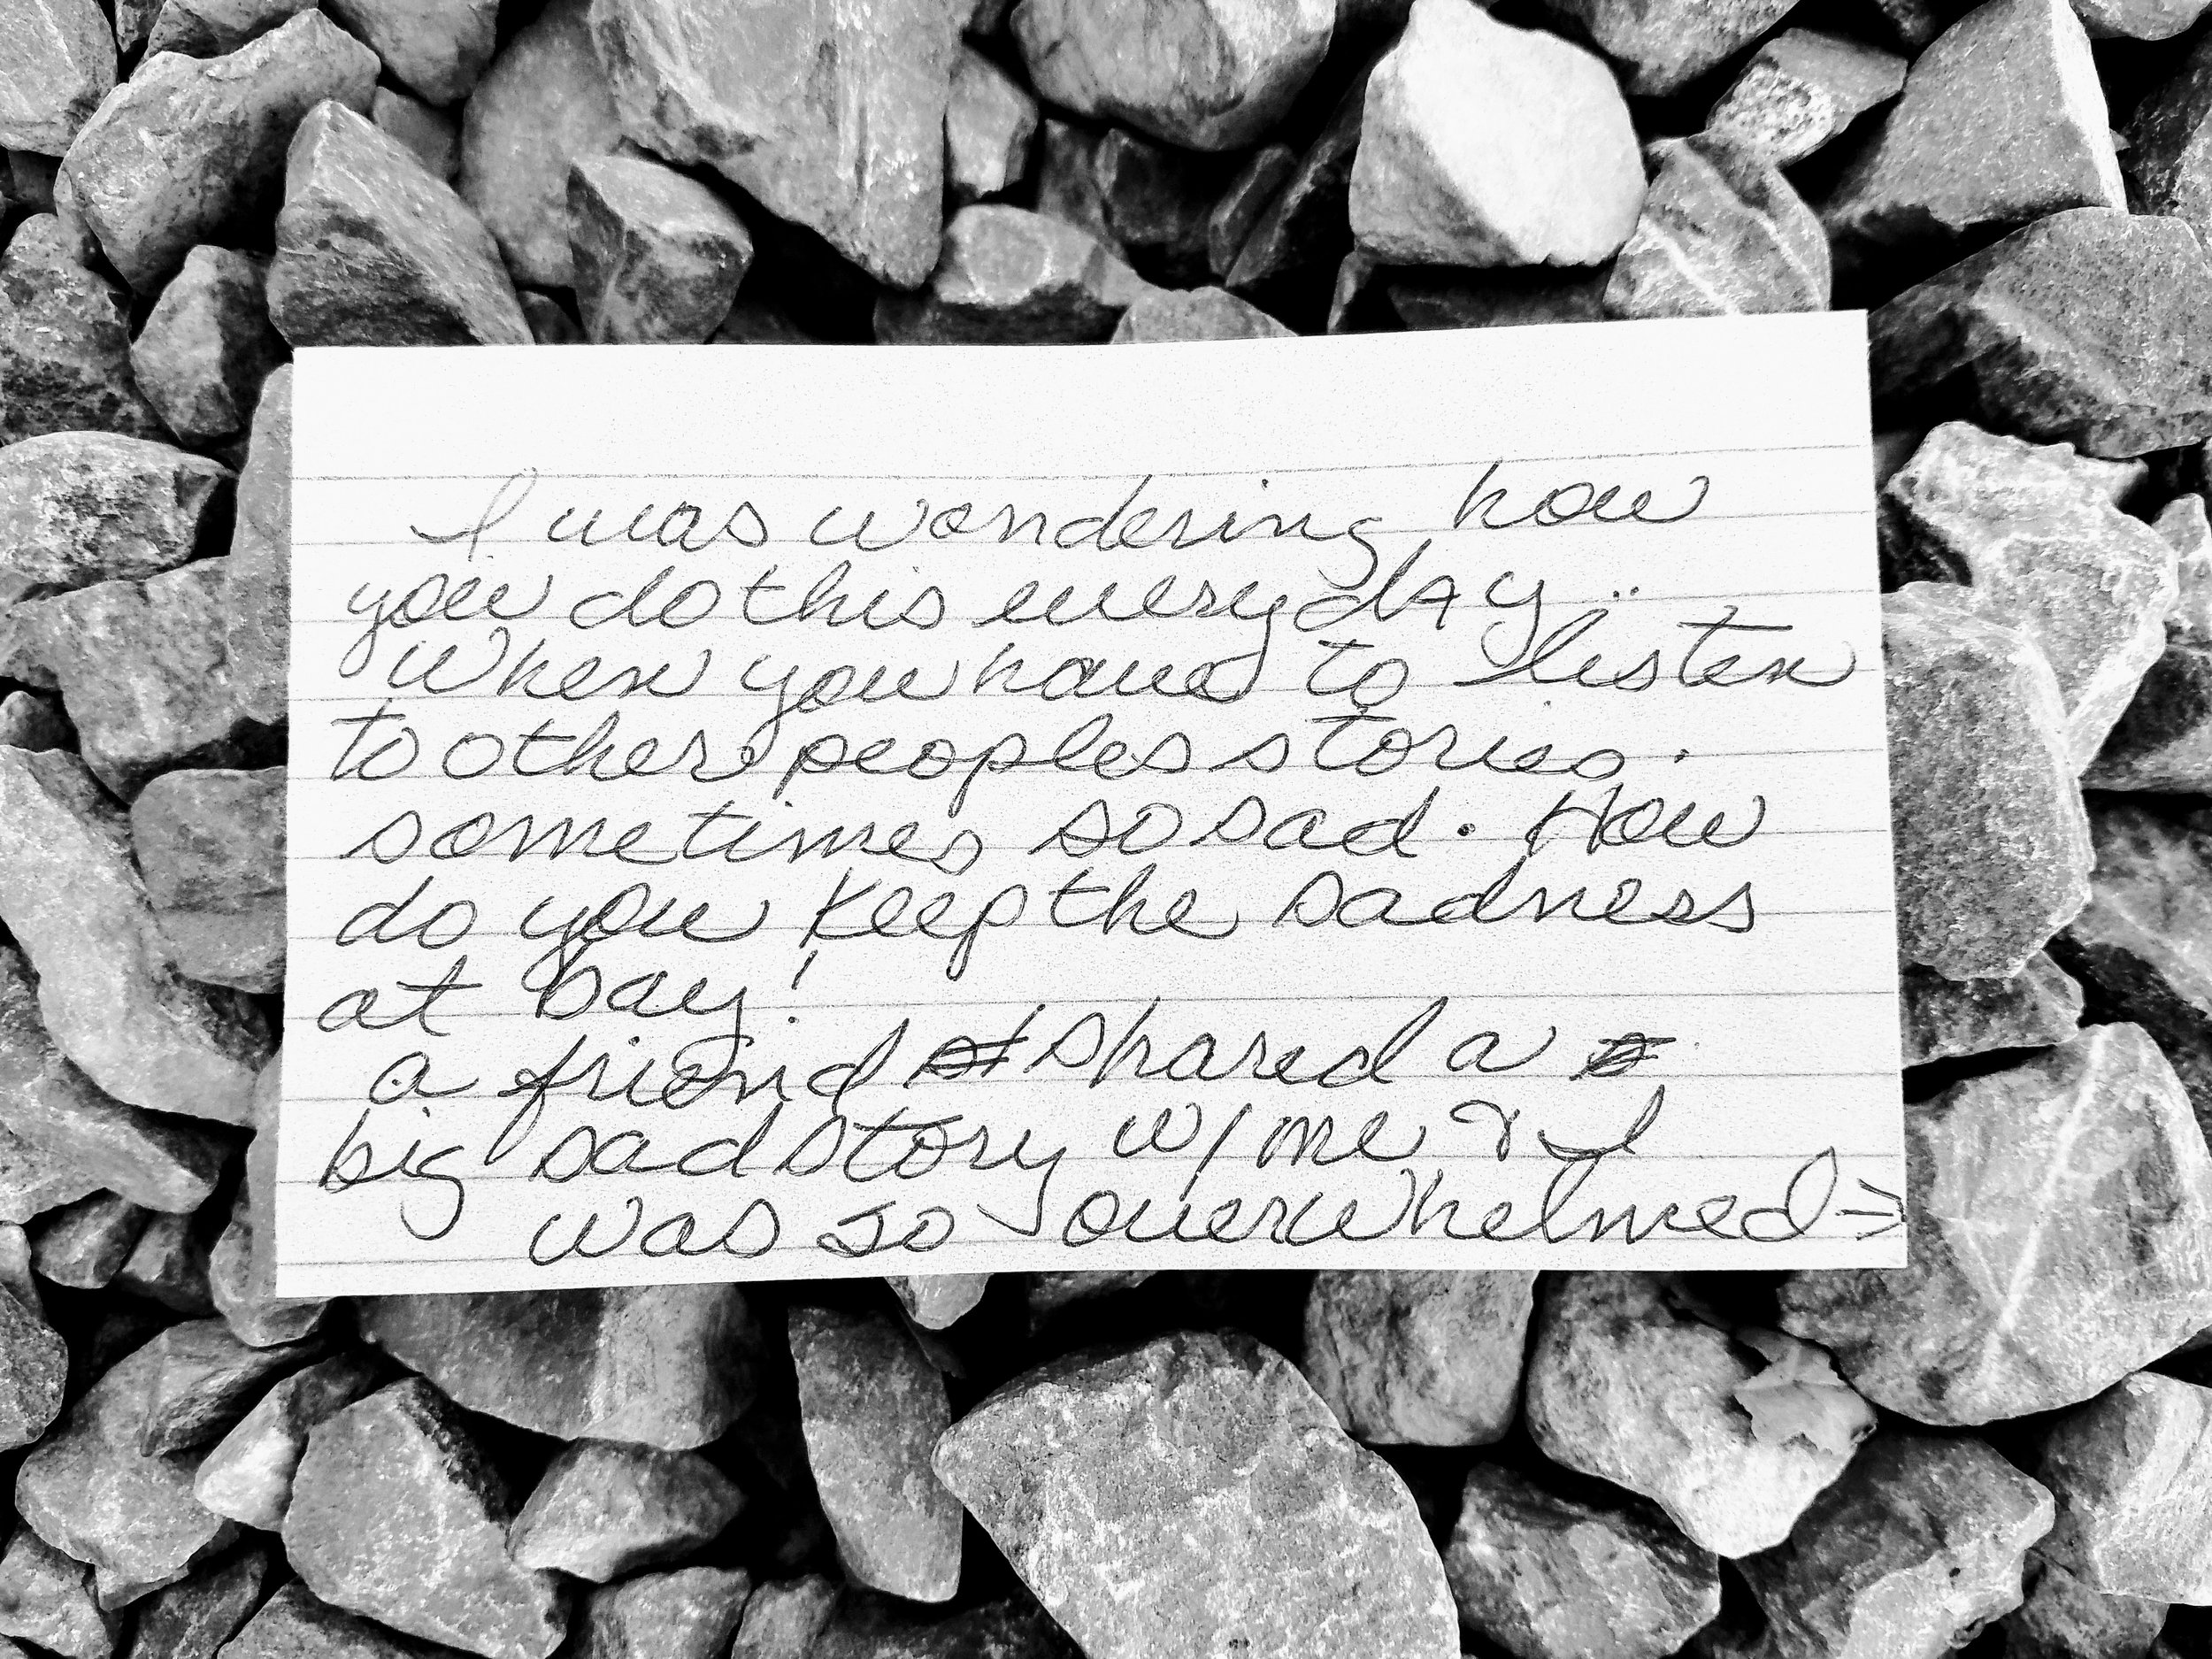 I was wondering how
you do this every day..
When you have to listen
to other peoples stories.
sometimes so sad. How
do you keep the sadness
at bay!
a friend shared a
big sad story w/ me & I
was so overwhelmed =>